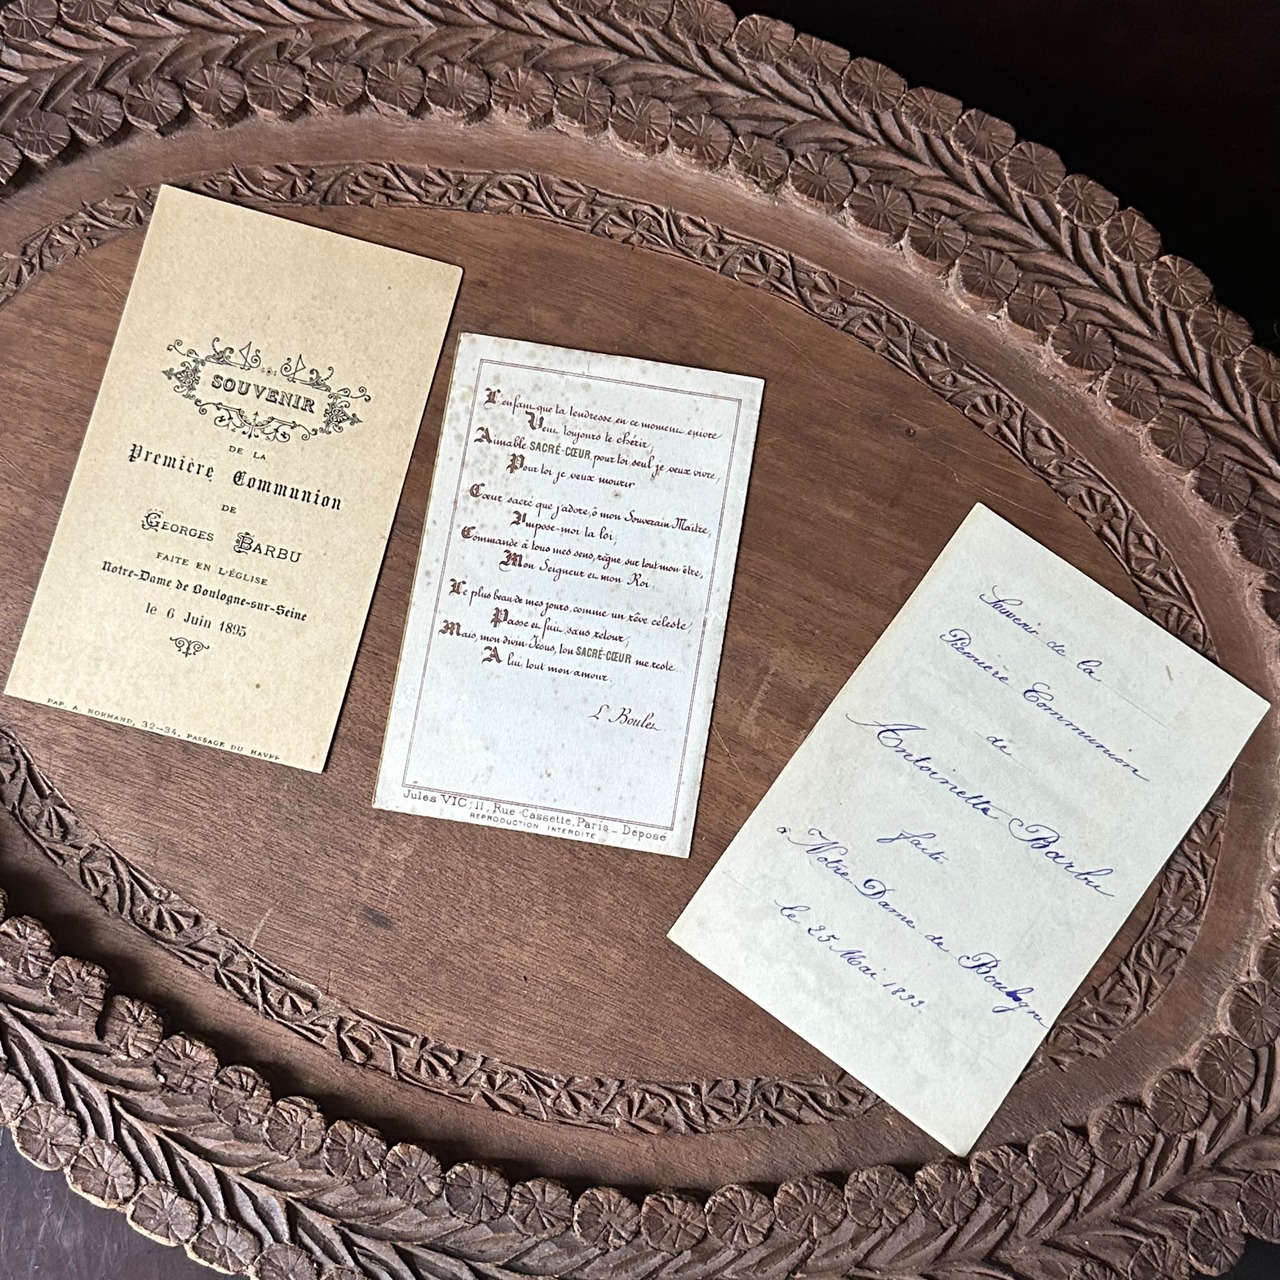 SOUVENIR
DE LA
Première Communion
DE
GEORGES BARBU
FAITE EN L'ÉGLISE
Notre-Dame de Boulogne-sur-Seine
le 6 Juin 1895
PAP. A. NORMAND, 32–34, PASSAGE DU HAVRE
L'enfant que ta tendresse en ce moment enivre
Veut toujours te chérir,
Aimable SACRÉ-CŒUR, pour toi seul je veux vivre,
Pour toi je veux mourir
Cœur sacré que j'adore, ô mon Souverain Maître,
Impose-moi ta loi,
Commande à tous mes sens, règne sur tout mon être,
Mon Seigneur et mon Roi.
Le plus beau de mes jours, comme un rêve céleste,
Passe et fuit sans retour,
Mais, mon divin Jésus, ton SACRÉ-CŒUR me reste
A lui tout mon amour.
L. Boulez
Jules VIC, 11, Rue Cassette, Paris _ Déposé
REPRODUCTION INTERDITE
Souvenir de la
Première Communion
de
Antoinette Barbu
faite
à Notre Dame de Boulogne
le 25 Mai 1899